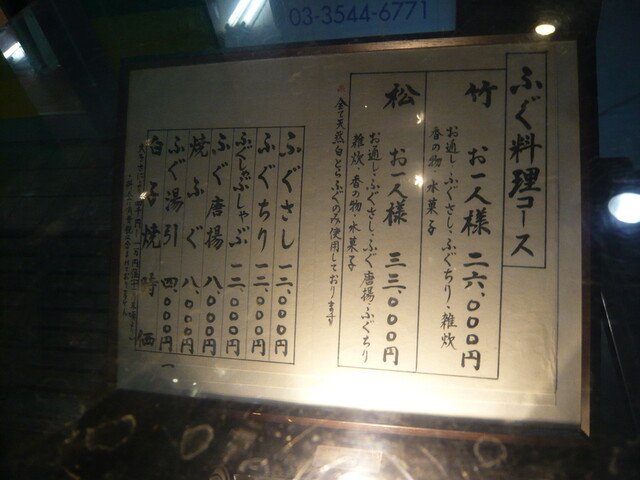 03-3544-6771
ふぐ料理コース
竹 お一人様 二六、〇〇〇円
お通し・ふぐさし・ふぐちり・雑炊
香の物・水菓子
松 お一人様 三三、〇〇〇円
お通し・ふぐさし・ふぐ唐揚・ふぐちり
雑炊・香の物・水菓子
全て天然白とらふぐのみ使用しております
ふぐさし 一二、〇〇〇円
ふぐちり 一二、〇〇〇円
ふぐしゃぶしゃぶ 一二、〇〇〇円
ふぐ唐揚 八、〇〇〇円
焼ふぐ 八、〇〇〇円
ふぐ湯引 四、〇〇〇円
白子焼 時価